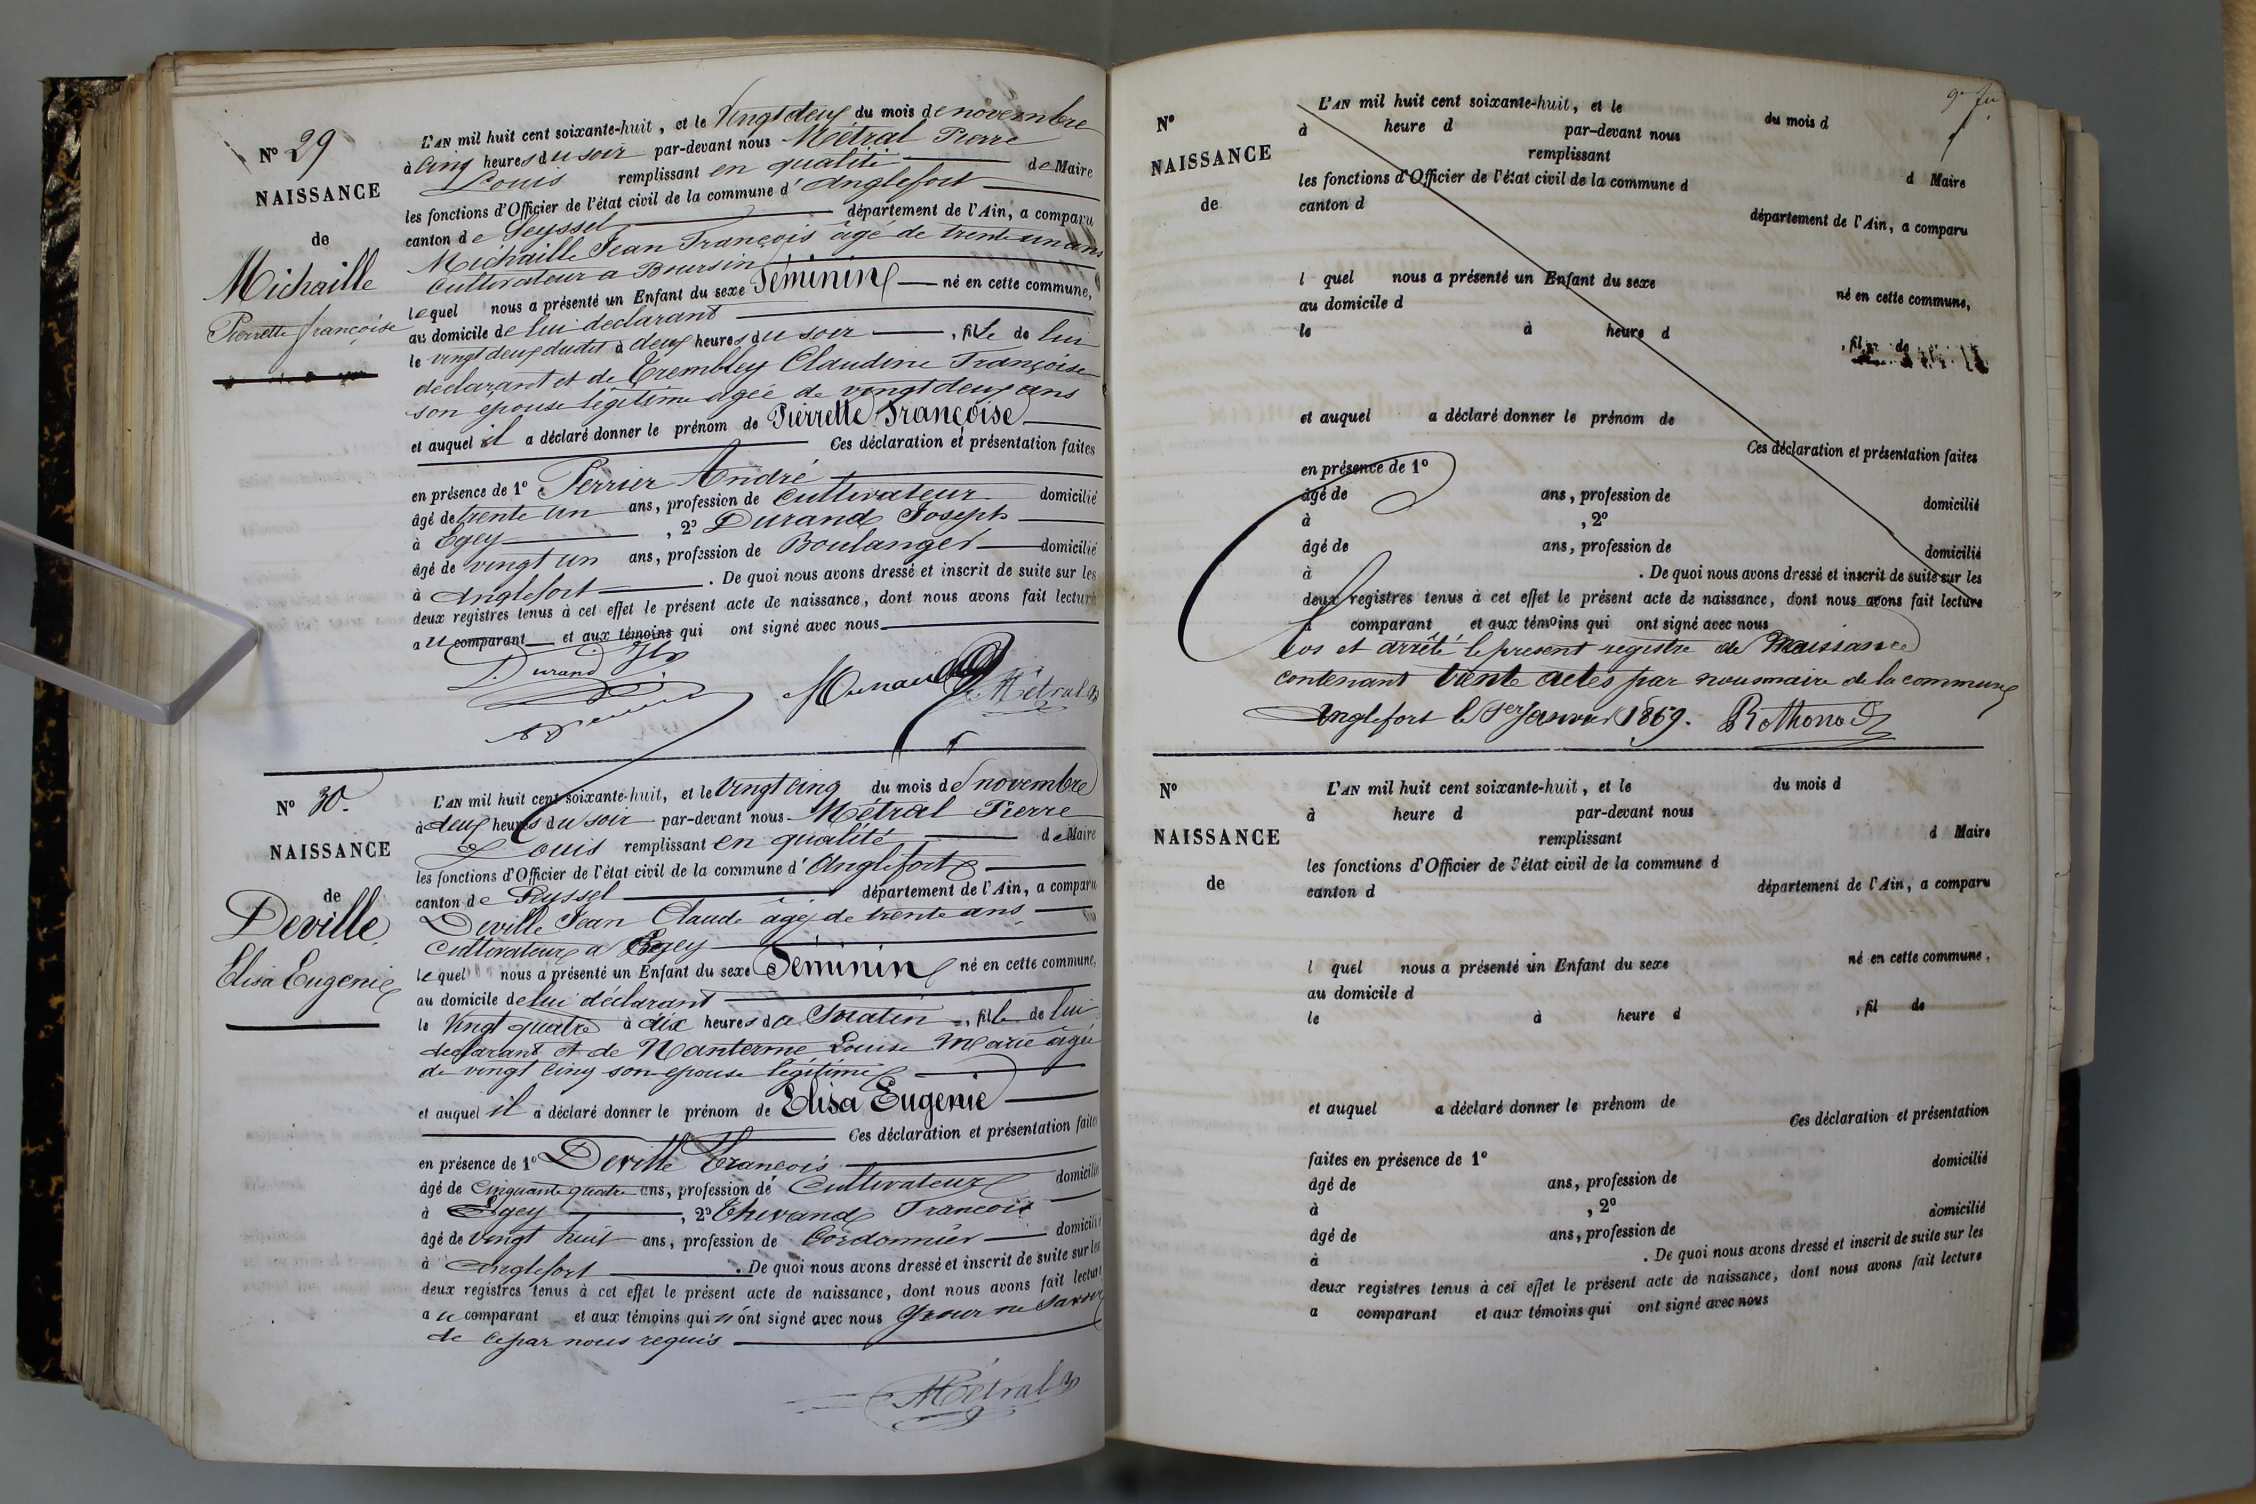 N° 29
NAISSANCE
de
Michaille
Pierrette françoise
L'AN mil huit cent soixante-huit, et le Vingt deux du mois de novembre
à Cinq heures du soir par-devant nous Métral Pierre
Louis remplissant en qualité de Maire
les fonctions d'Officier de l'état civil de la commune d'Anglefort
canton de Seyssel département de l'Ain, a comparu
Michaille Jean François âgé de trente un ans
Cultivateur a Boursin
lequel nous a présenté un Enfant du sexe Féminin né en cette commune,
au domicile de lui declarant
le vingt deux dudit à deux heures du soir, fille de lui
declarant et de Trembley Claudine Françoise
son epouse légitime agée de vingt deux ans
et auquel il a déclaré donner le prénom de Pierrette Françoise
Ces déclaration et présentation faites
en présence de 1° Perrier André
âgé de trente un ans, profession de Cultivateur domicilié
à Egey, 2° Durand Joseph
âgé de vingt un ans, profession de Boulanger domicilié
à Anglefort. De quoi nous avons dressé et inscrit de suite sur les
deux registres tenus à cet effet le présent acte de naissance, dont nous avons fait lecture
au comparant et aux témoins qui ont signé avec nous
Durand
Métral
N° 30
NAISSANCE
de
Deville
Elisa Eugenie
L'AN mil huit cent soixante-huit, et le Vingt cinq du mois de novembre
à deux heures du soir par-devant nous Métral Pierre
Louis remplissant en qualité de Maire
les fonctions d'Officier de l'état civil de la commune d'Anglefort
canton de Seyssel département de l'Ain, a comparu
Deville Jean Claude âgé de trente ans
Cultivateur a Egey
lequel nous a présenté un Enfant du sexe Féminin né en cette commune,
au domicile de lui déclarant
le Vingt quatre à dix heures du matin, fille de lui
declarant et de Nanterme Louise Marie agée
de vingt cinq son epouse légitime
et auquel il a déclaré donner le prénom de Elisa Eugenie
Ces déclaration et présentation faites
en présence de 1° Deville François
âgé de Cinquante quatre ans, profession de Cultivateur domicilié
à Egey, 2° Thevand François
âgé de vingt huit ans, profession de Cordonnier domicilié
à Anglefort. De quoi nous avons dressé et inscrit de suite sur les
deux registres tenus à cet effet le présent acte de naissance, dont nous avons fait lecture
au comparant et aux témoins qui n'ont signé avec nous pour ne savoir
de ce par nous requis
Métral
N°
NAISSANCE
de
L'AN mil huit cent soixante-huit, et le du mois d
à heure d par-devant nous
remplissant d Maire
les fonctions d'Officier de l'état civil de la commune d
canton d département de l'Ain, a comparu
l quel nous a présenté un Enfant du sexe né en cette commune,
au domicile d
le à heure d , fil de
et auquel a déclaré donner le prénom de
Ces déclaration et présentation faites
en présence de 1°
âgé de ans, profession de domicilié
à , 2°
âgé de ans, profession de domicilié
à . De quoi nous avons dressé et inscrit de suite sur les
deux registres tenus à cet effet le présent acte de naissance, dont nous avons fait lecture
a comparant et aux témoins qui ont signé avec nous
Clos et arrêté le present registre de naissance
contenant trente actes par nous maire de la commune
Anglefort le 1er Janvier 1869. Rothonod
N°
NAISSANCE
de
L'AN mil huit cent soixante-huit, et le du mois d
à heure d par-devant nous
remplissant d Maire
les fonctions d'Officier de l'état civil de la commune d
canton d département de l'Ain, a comparu
l quel nous a présenté un Enfant du sexe né en cette commune,
au domicile d
le à heure d , fil de
et auquel a déclaré donner le prénom de
Ces déclaration et présentation
faites en présence de 1° domicilié
âgé de ans, profession de
à , 2° domicilié
âgé de ans, profession de
à . De quoi nous avons dressé et inscrit de suite sur les
deux registres tenus à cet effet le présent acte de naissance, dont nous avons fait lecture
a comparant et aux témoins qui ont signé avec nous